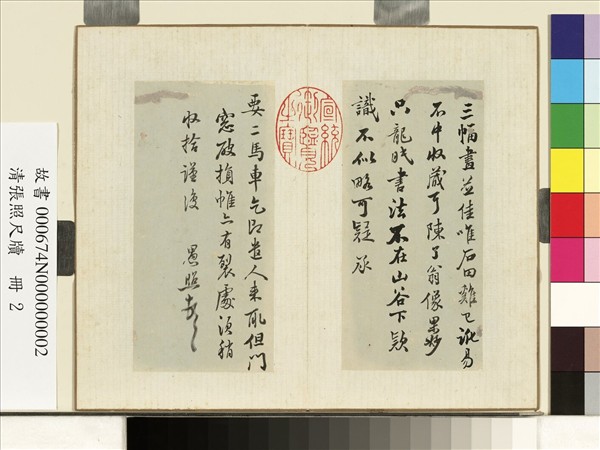 三幅畫並佳唯石田雞已訛易
不中收藏可陳了翁像果妙
只龍眠書法不在山谷下款
識不似略可疑
要二馬車乞即遣人來取但門
窗破損帷亦有裂處須稍
收拾謹復 愚照
宣統御覽之寶
故書 000674N000000002
清張照尺牘 冊 2